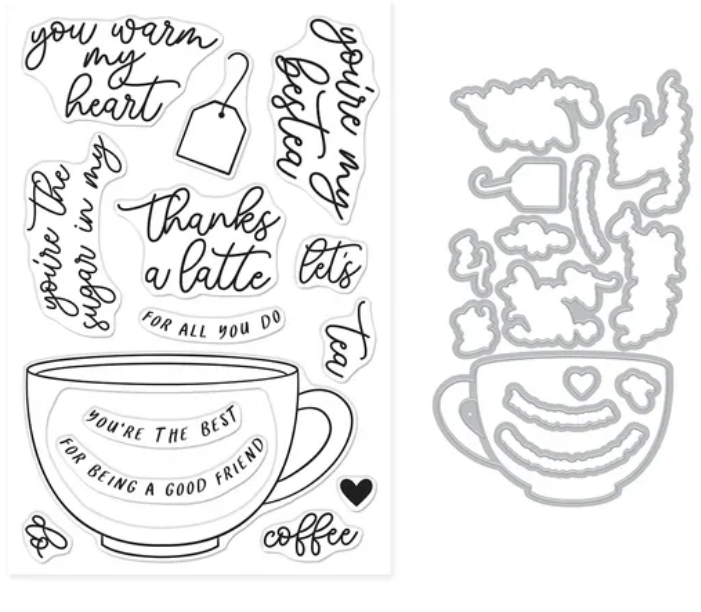 you warm
my
heart
you're my
bestea
you're the
sugar in my
thanks
a latte
let's
FOR ALL YOU DO
tea
YOU'RE THE BEST
FOR BEING A GOOD FRIEND
&
coffee